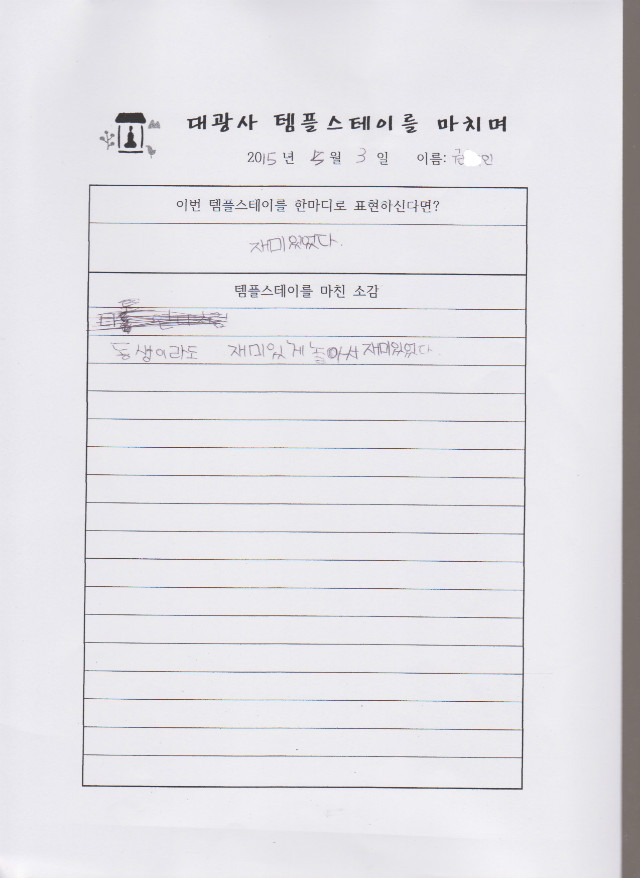 대광사 템플스테이를 마치며
2015년 5월 3일 이름: 인
이번 템플스테이를 한마디로 표현하신다면?
재미있었다.
템플스테이를 마친 소감
동생이라도 재미있게 놀아서 재미있었다.